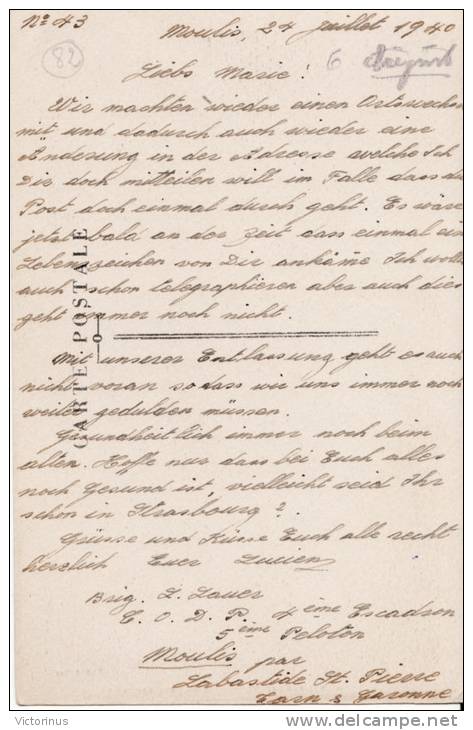 No 43
Moulis, 24 Juillet 1940
82
Liebs Marie!
Wir machten wieder einen Ortswechsel
mit und dadurch auch wieder eine
Änderung in der Adresse welche Ich
Dir doch mitteilen will im Falle dass die
Post doch einmal durch geht. Es wäre
jetzt bald an der Zeit dass einmal ein
Lebenszeichen von Dir ankäme Ich wollte
auch schon telegraphieren aber auch dies
geht immer noch nicht.
Mit unserer Entlassung geht es auch
nicht voran so dass wir uns immer noch
weiter gedulden müssen.
Gesundheitlich immer noch beim
alten. Hoffe nur dass bei Euch alles
noch Gesund ist, vielleicht seid Ihr
schon in Strasbourg?
Grüsse und Küsse Euch alle recht
herzlich Euer Lucien
Brig. L. Lauer
C. O. D. P. 4ème Escadron
5ème Peloton
Moulis par
Labastide St. Pierre
Tarn & Garonne
CARTE POSTALE
Victorinus
delcampe.net